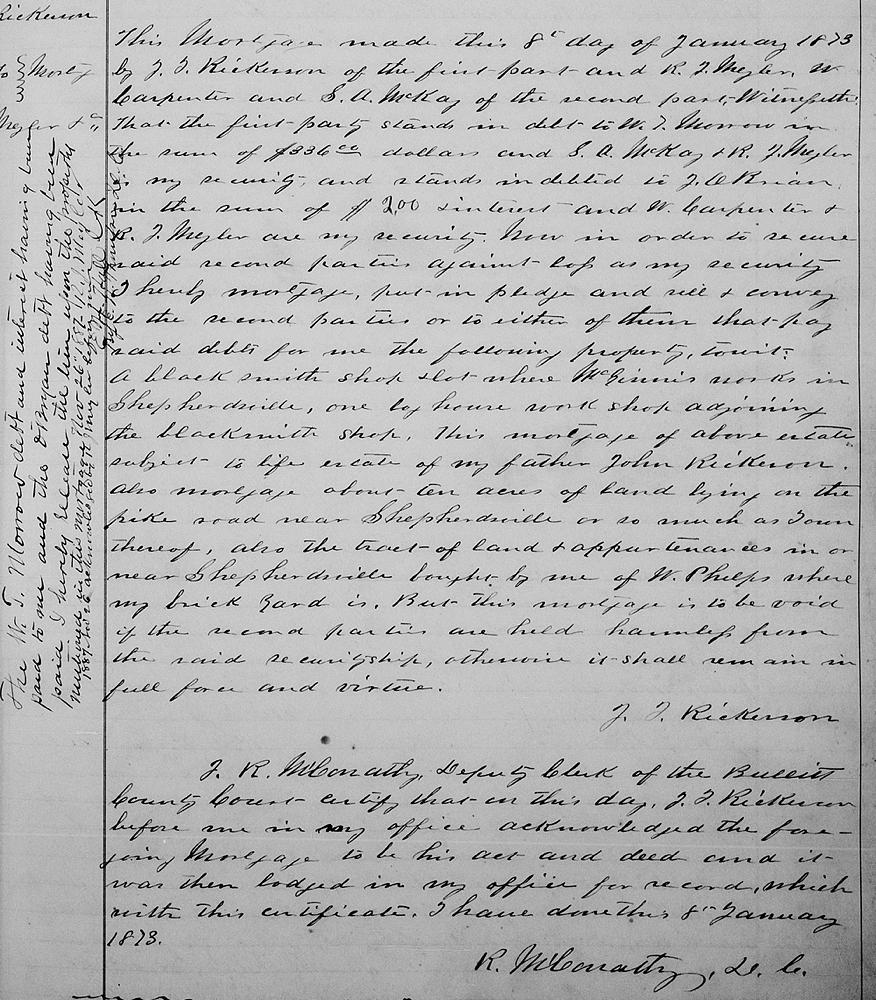 Rickerson
to } Mortg
Megler & Co
This Mortgage made this 8th day of January 1873
by J. T. Rickerson of the first part and R. J. Megler, W.
Carpenter and S. A. McKay of the second part, Witnesseth:
That the first party stands in debt to W. T. Morrow in
the sum of $336.00 dollars and S. A. McKay & R. J. Megler
is my security, and stands indebted to J. O Brian
in the sum of $ 200 & interest and W. Carpenter &
R. J. Megler are my security. Now in order to secure
said second parties against loss as my security
I hereby mortgage, put in pledge and sell & convey
to the second parties or to either of them that pay
said debts for me the following property, towit:
A black smith shop & lot where McGinnis works in
Shepherdsville, one log house work shop adjoining
the blacksmith shop. This mortgage of above estate
subject to life estate of my father John Rickerson.
also mortgage about ten acres of land lying on the
pike road near Shepherdsville or so much as I own
thereof, also the tract of land & appurtenances in or
near Shepherdsville bought by me of W. Phelps where
my brick Yard is. But this mortgage is to be void
if the second parties are held harmless from
the said securityship, otherwise it shall remain in
full force and virtue.
J. T. Rickerson
I. R. McConathy, Deputy Clerk of the Bullitt
County Court certify that on this day, J. T. Rickerson
before me in my office acknowledged the fore-
going Mortgage to be his act and deed and it
was then lodged in my office for record, which
with this certificate. I have done this 8th January
1873.
R. McConathy, D. C.
The W. T. Morrow debt and interest having been
paid to me and the O'Bryan debt having been
paid I hereby release the lien upon this property
mentioned in this mortgage Nov 26, 1887. R. J. Megler
1887